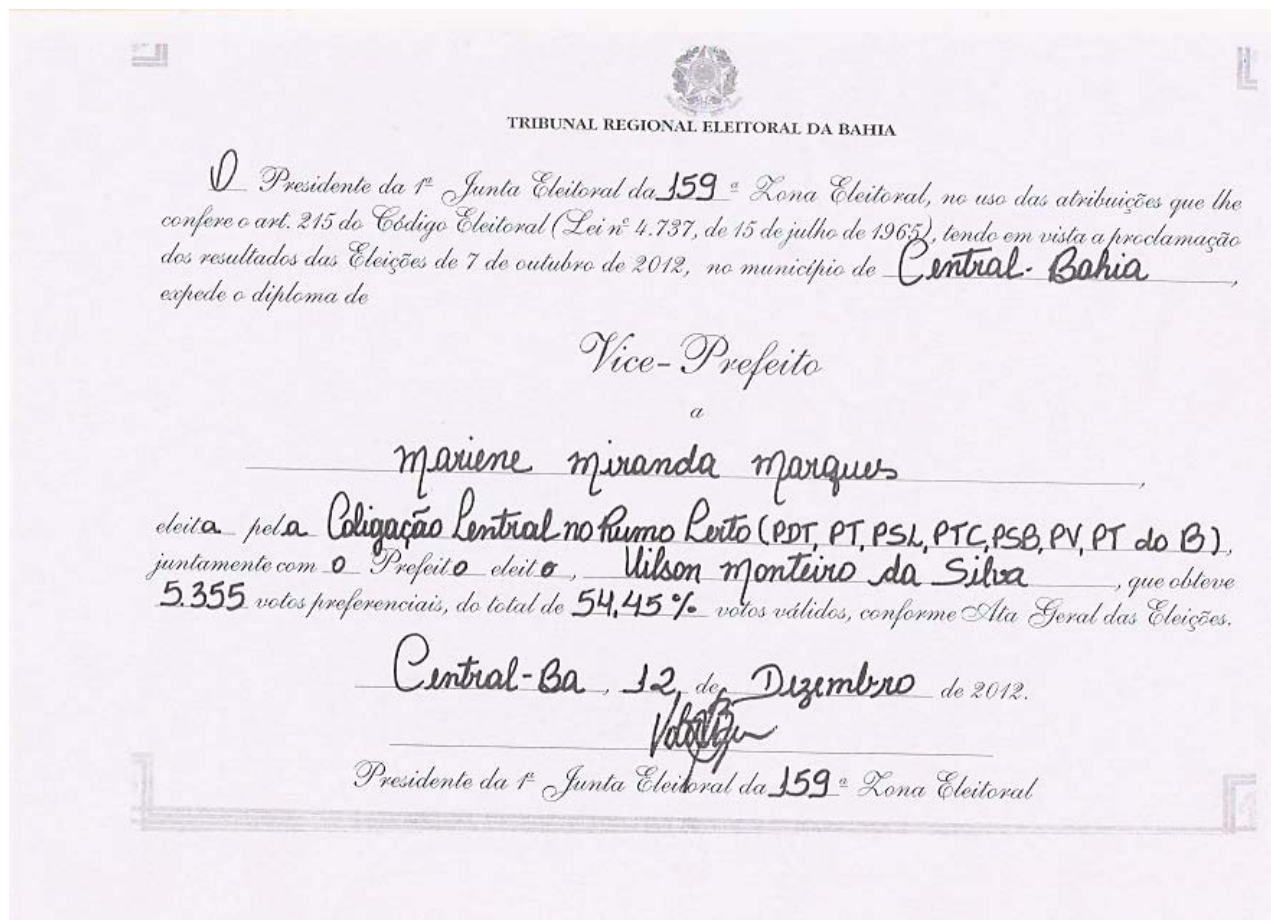 TRIBUNAL REGIONAL ELEITORAL DA BAHIA
O Presidente da 1ª Junta Eleitoral da 159 ª Zona Eleitoral, no uso das atribuições que lhe
confere o art. 215 do Código Eleitoral (Lei nº 4.737, de 15 de julho de 1965), tendo em vista a proclamação
dos resultados das Eleições de 7 de outubro de 2012, no município de Central - Bahia ,
expede o diploma de
Vice-Prefeito
a
Mariene Miranda Marques ,
eleita pela Coligação Central no Rumo Certo (PDT, PT, PSL, PTC, PSB, PV, PT do B),
juntamente com o Prefeito eleito , Uilson Monteiro da Silva , que obteve
5.355 votos preferenciais, do total de 54,45 % votos válidos, conforme Ata Geral das Eleições.
Central-Ba , 12, de Dezembro de 2012.
Presidente da 1ª Junta Eleitoral da 159 ª Zona Eleitoral